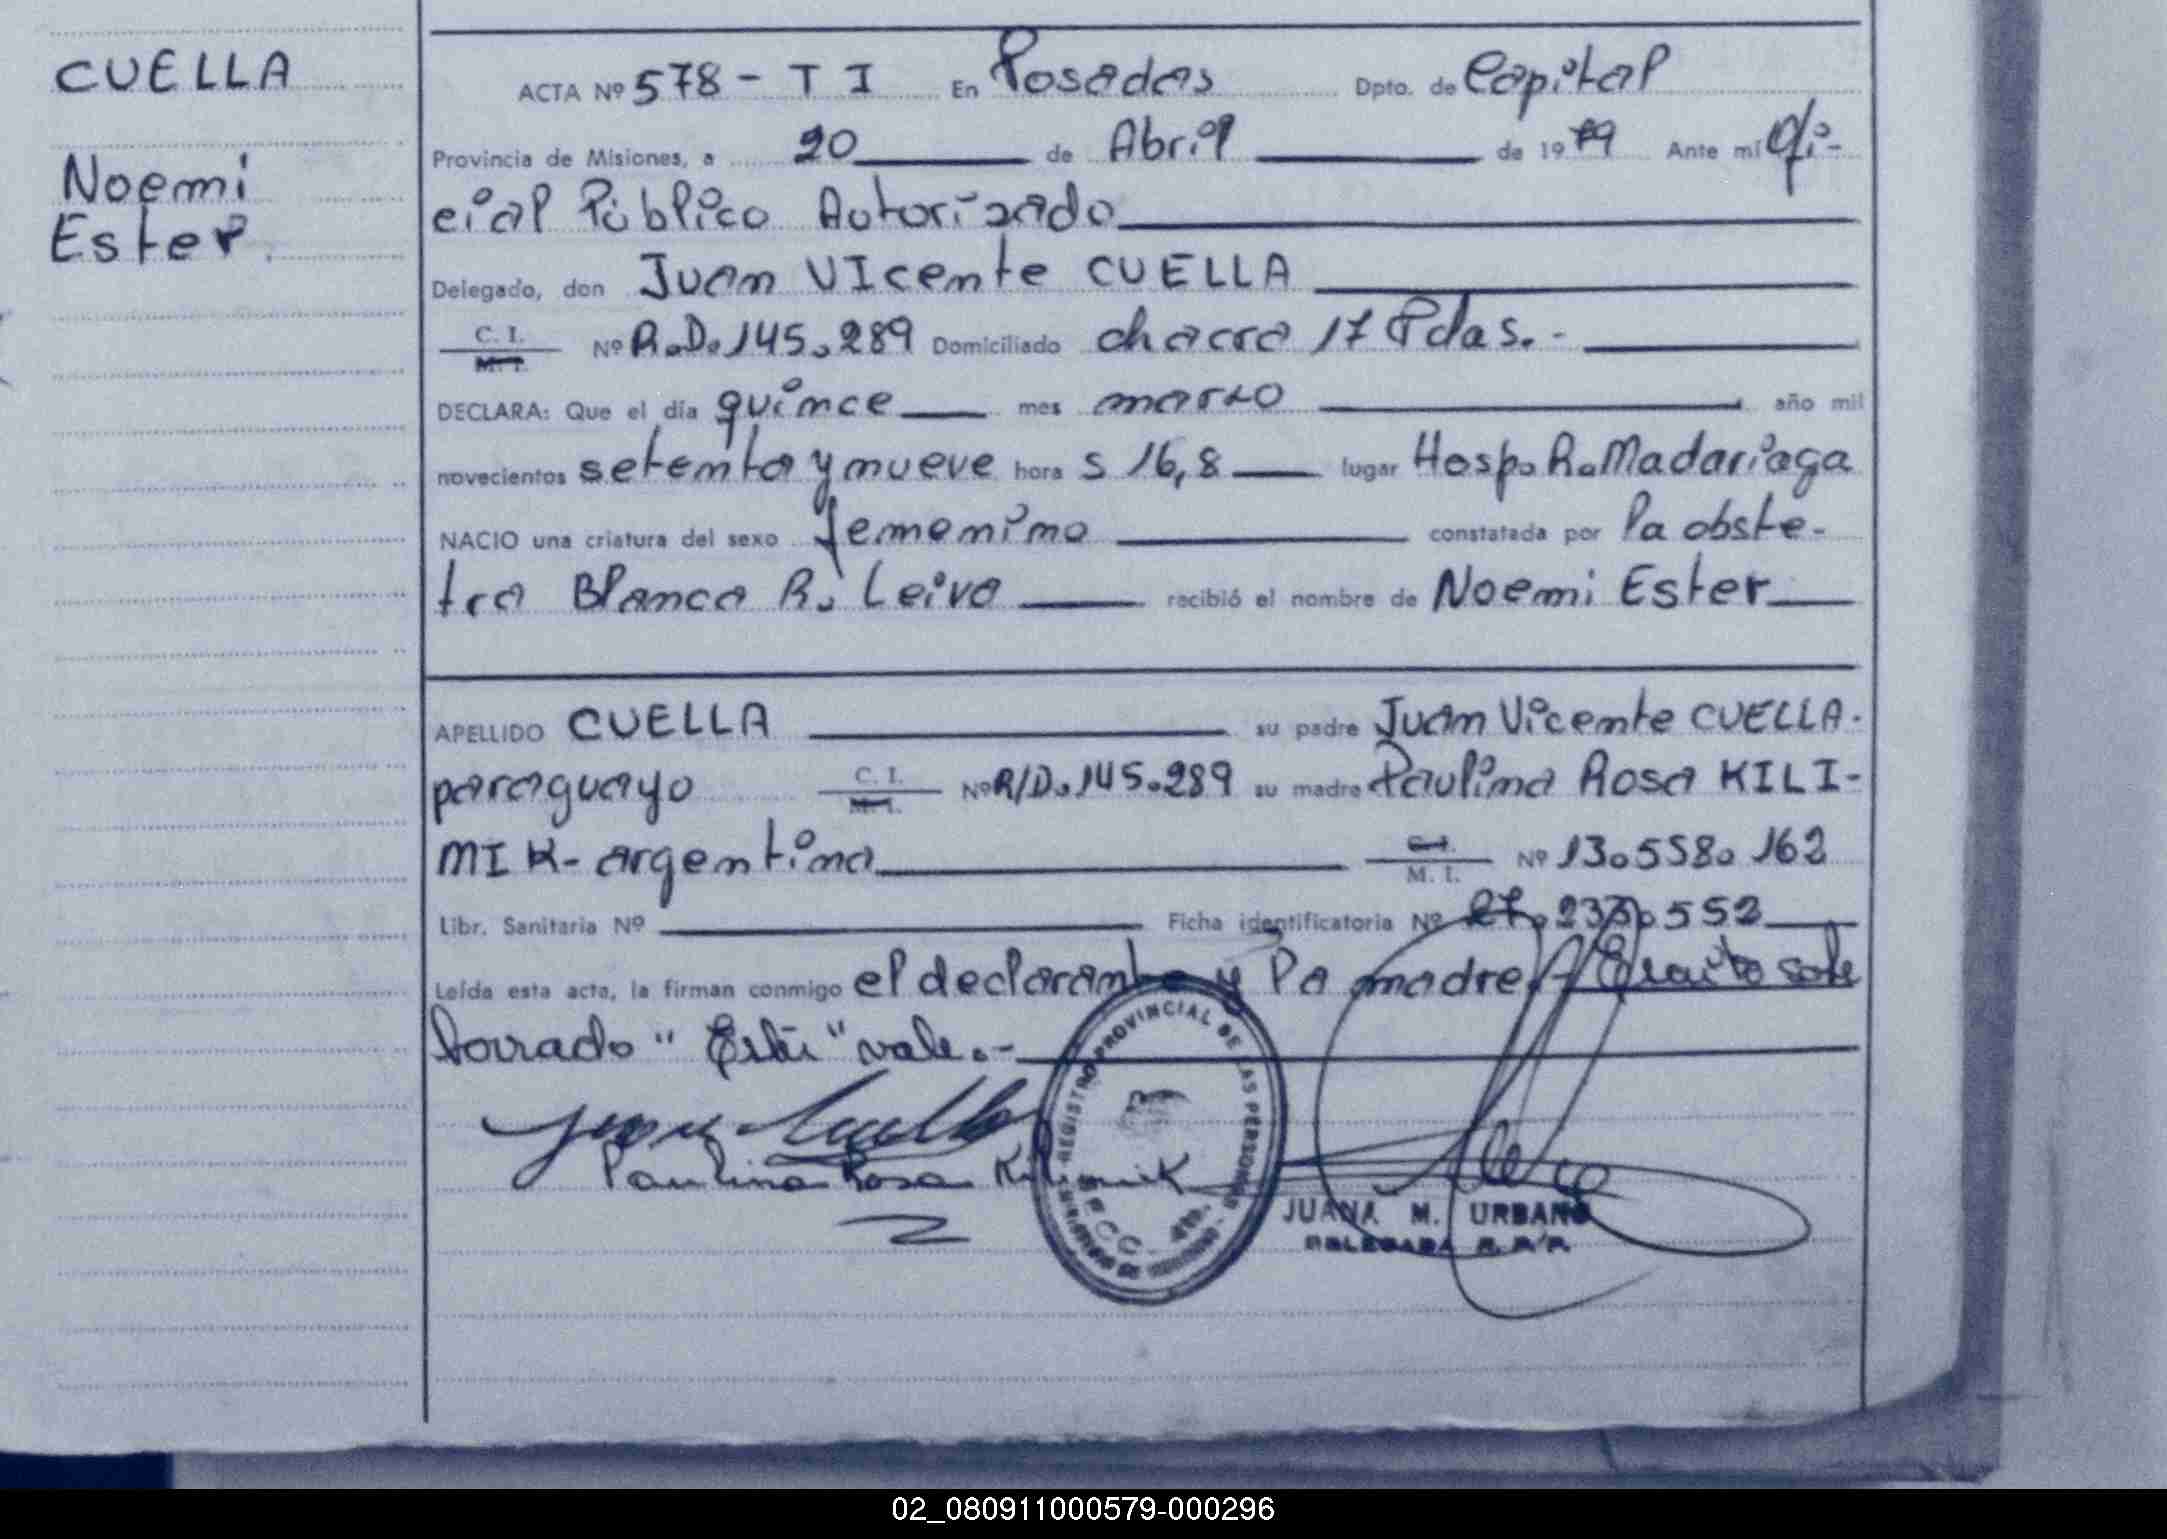 CUELLA
Noemi
Ester
ACTA Nº 578 - T I En Posadas Dpto. de Capital
Provincia de Misiones, a 20 de Abril de 1979 Ante mí Ofi-
cial Público Autorizado
Delegado, don Juan VIcente CUELLA
C. I.
M. I.
Nº R.D.145.289 Domiciliado chacra 17 Pdas.-
DECLARA: Que el día quince mes marzo año mil
novecientos setenta y nueve hora s 16,8 lugar Hosp. R. Madariaga
NACIO una criatura del sexo femenino constatada por la obste-
tra Blanca R. Leiva recibió el nombre de Noemi Ester
APELLIDO CUELLA su padre Juan Vicente CUELLA.
paraguayo C. I. M. I. Nº R/D.145.289 su madre Paulina Rosa KILI-
MIK- argentina C. I. M. I. Nº 13.558.162
Libr. Sanitaria Nº Ficha identificatoria Nº 27.233.552
Leída esta acta, la firman conmigo el declarante y la madre.- Escrito sobre
borrado " " vale.-
Juan Cuella
Paulina Rosa Kilimik
REGISTRO PROVINCIAL DE LAS PERSONAS
SECC. 4ta.
JUANA M. URBANO
DELEGADA R.P.P.
02_080911000579-000296